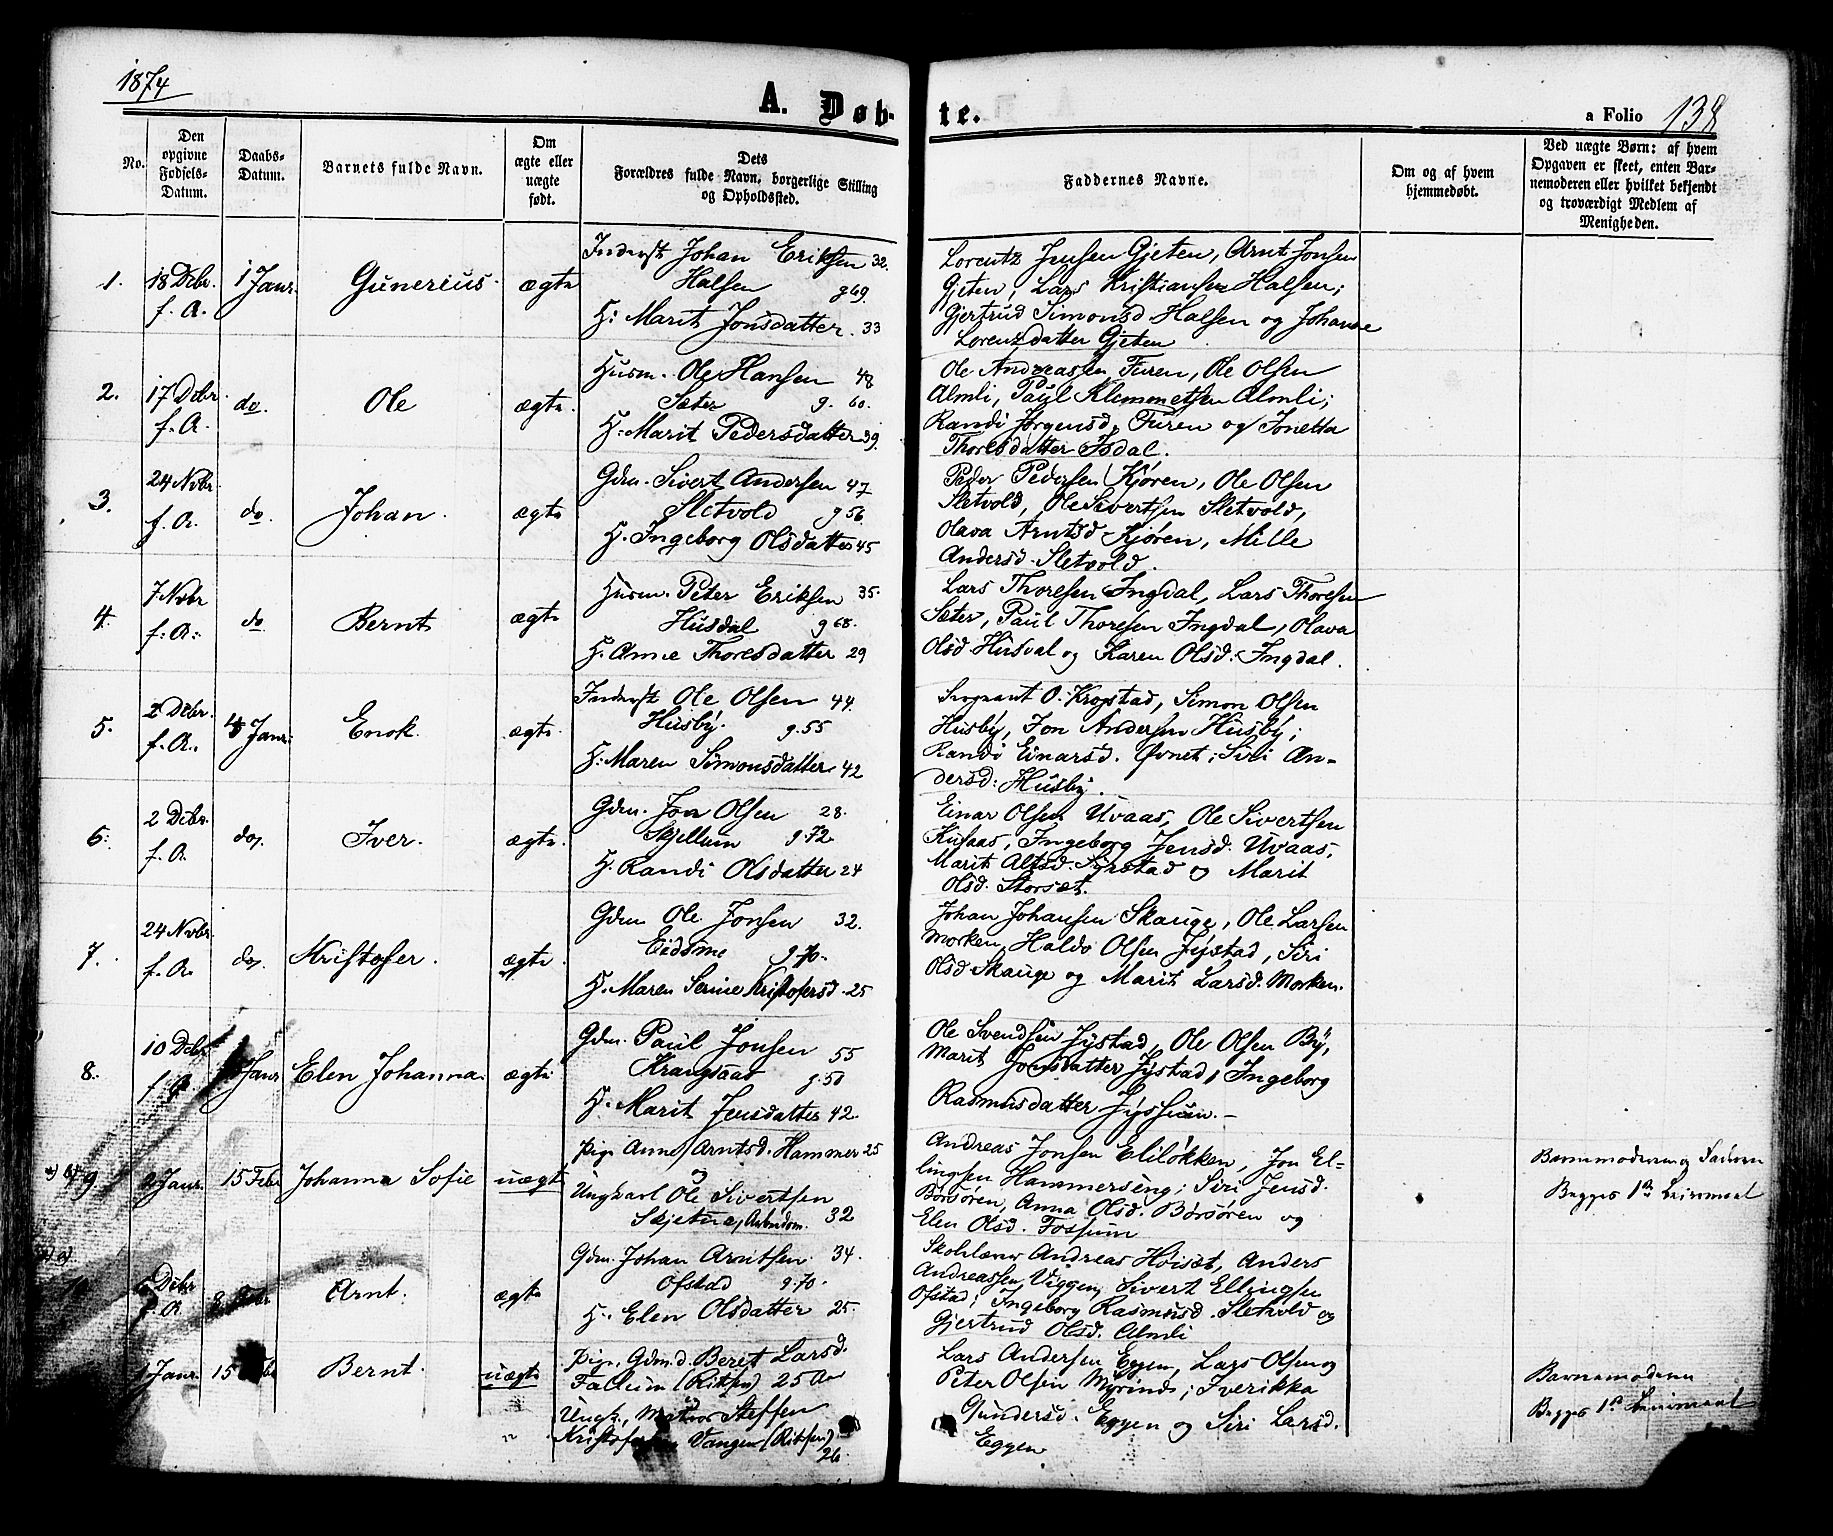 1874
A. Døb-
te.
a Folio 138
No.
Den opgivne Fødsels-Datum.
Daabs-Datum.
Barnets fulde Navn.
Om ægte eller uægte født.
Dets Forældres fulde Navn, borgerlige Stilling og Opholdssted.
Faddernes Navne.
Om og af hvem hjemmedøbt.
Ved uægte Børn: af hvem Opgaven er skeet, enten Barnemoderen eller hvilket bekjendt og troværdigt Medlem af Menigheden.
1. 18 Dcbr. f. A. 1 Janr. Gunerius. ægte
Inderst Johan Eriksen 32.
Halsen g 69.
H: Marit Jonsdatter. 33
Lorentz Jensen Gjeten, Arnt Jonsen
Gjeten, Lars Kristiansen Halsen;
Gjertrud Simonsd Halsen og Johanne
Lorenzdatter Gjeten
2. 17 Dcbr f. A. do. Ole ægte.
Husm. Ole Hansen 48
Sæter g. 60.
H: Marit Pedersdatter 39.
Ole Andreassen Furen, Ole Olsen
Almli, Paul Klemmetsen Almli;
Randi Jørgensd. Furen og Jonetta
Thoresdatter Isdal.
3. 24 Novbr f. A. do. Johan. ægte
Gdm. Sivert Andersen 47
Sletvold g 56.
H. Ingeborg Olsdatter 45
Peder Pedersen Kjøren, Ole Olsen
Sletvold, Ole Sivertsen Sletvold,
Olava Arntsd Kjøren, Mille
Andersd. Sletvold.
4. 7 Novbr f. A. do Bernt ægte
Husm. Peter Eriksen 35.
Husdal g 68.
H. Anne Thoresdatter 29
Lars Thoresen Ingdal, Lars Thoresen
Sæter, Paul Thoresen Ingdal, Olava
Olsd. Husdal og Karen Olsd: Ingdal.
5. 2 Dcbr. f. A. 4 Janr. Enok. ægte.
Inderst Ole Olsen 44.
Husby. g. 55
H: Maren Simonsdatter 42
O. Krogstad, Simon Olsen
Husby, Jon Andersen Husby;
Randi Einarsd. Øvnet; Siri An-
dersd: Husby.
6. 2 Dcbr. f. A. do. Iver. ægte.
Gdm. Jon Olsen 28.
Skjellum g 72
H. Randi Olsdatter 24
Einar Olsen Uvaas, Ole Sivertsen
Kusaas, Ingeborg Jensd. Uvaas,
Marit Syrstad og Marit
Olsd. Storsæt.
7. 24 Novbr. f. A. do. Kristofer. ægte
Gdm Ole Jonsen 32.
Eidsme g 70.
H. Maren Serine Kristofersd. 25
Johan Johansen Skauge, Ole Larsen
Morken, Haldo Olsen Jystad, Siri
Olsd Skauge og Marit Larsd. Morken.
8. 10 Dcbr f. A. Janr Elen Johanna. ægte
Gdm. Paul Jonsen 55
g. 50
H. Marit Jensdatter 42.
Ole Svendsen Jystad, Ole Olsen By,
Marit Jonsdatter Jystad, Ingeborg
Rasmusdatter
9 2 Janr. 15 Febr Johanna Sofie uægte
Pige Anne Arntsd. Hammer 25
og
Ungkarl Ole Sivertsen
Skjetne, Arbeidsm. 32
Andreas Jonsen Eliløkken, Jon El-
lingsen Hammerseng; Siri Jensd.
Børsøren, Anna Olsd. Børsøren og
Elen Olsd. Fossum
Barnemoderen og Faderen
Begges 1ste Leiermaal
10 Dcbr f. A. Febr Arnt. ægte
Gdm. Johan Arntsen. 34
Ofstad g. 70.
H. Elen Olsdatter 25.
Skolelærer Andreas Høiset, Anders
Andreassen Viggen, Sivert Ellingsen
Ofstad; Ingeborg Rasmusd. Sletvold og
Gjertrud Olsd. Almli
1 Janr. 15 Bernt. uægte
Pige, Gdm.d. Berit Larsd.
(Rissen) 25 Aar
Ungk., Steffen
Vangen (Rissen)
26.
Lars Andersen Eggen, Lars Olsen og
Peter Olsen Myrind; Iverikka
Gundersd. Eggen og Siri Larsd.
Eggen
Barnemoderen
Begges 1ste Leiermaal